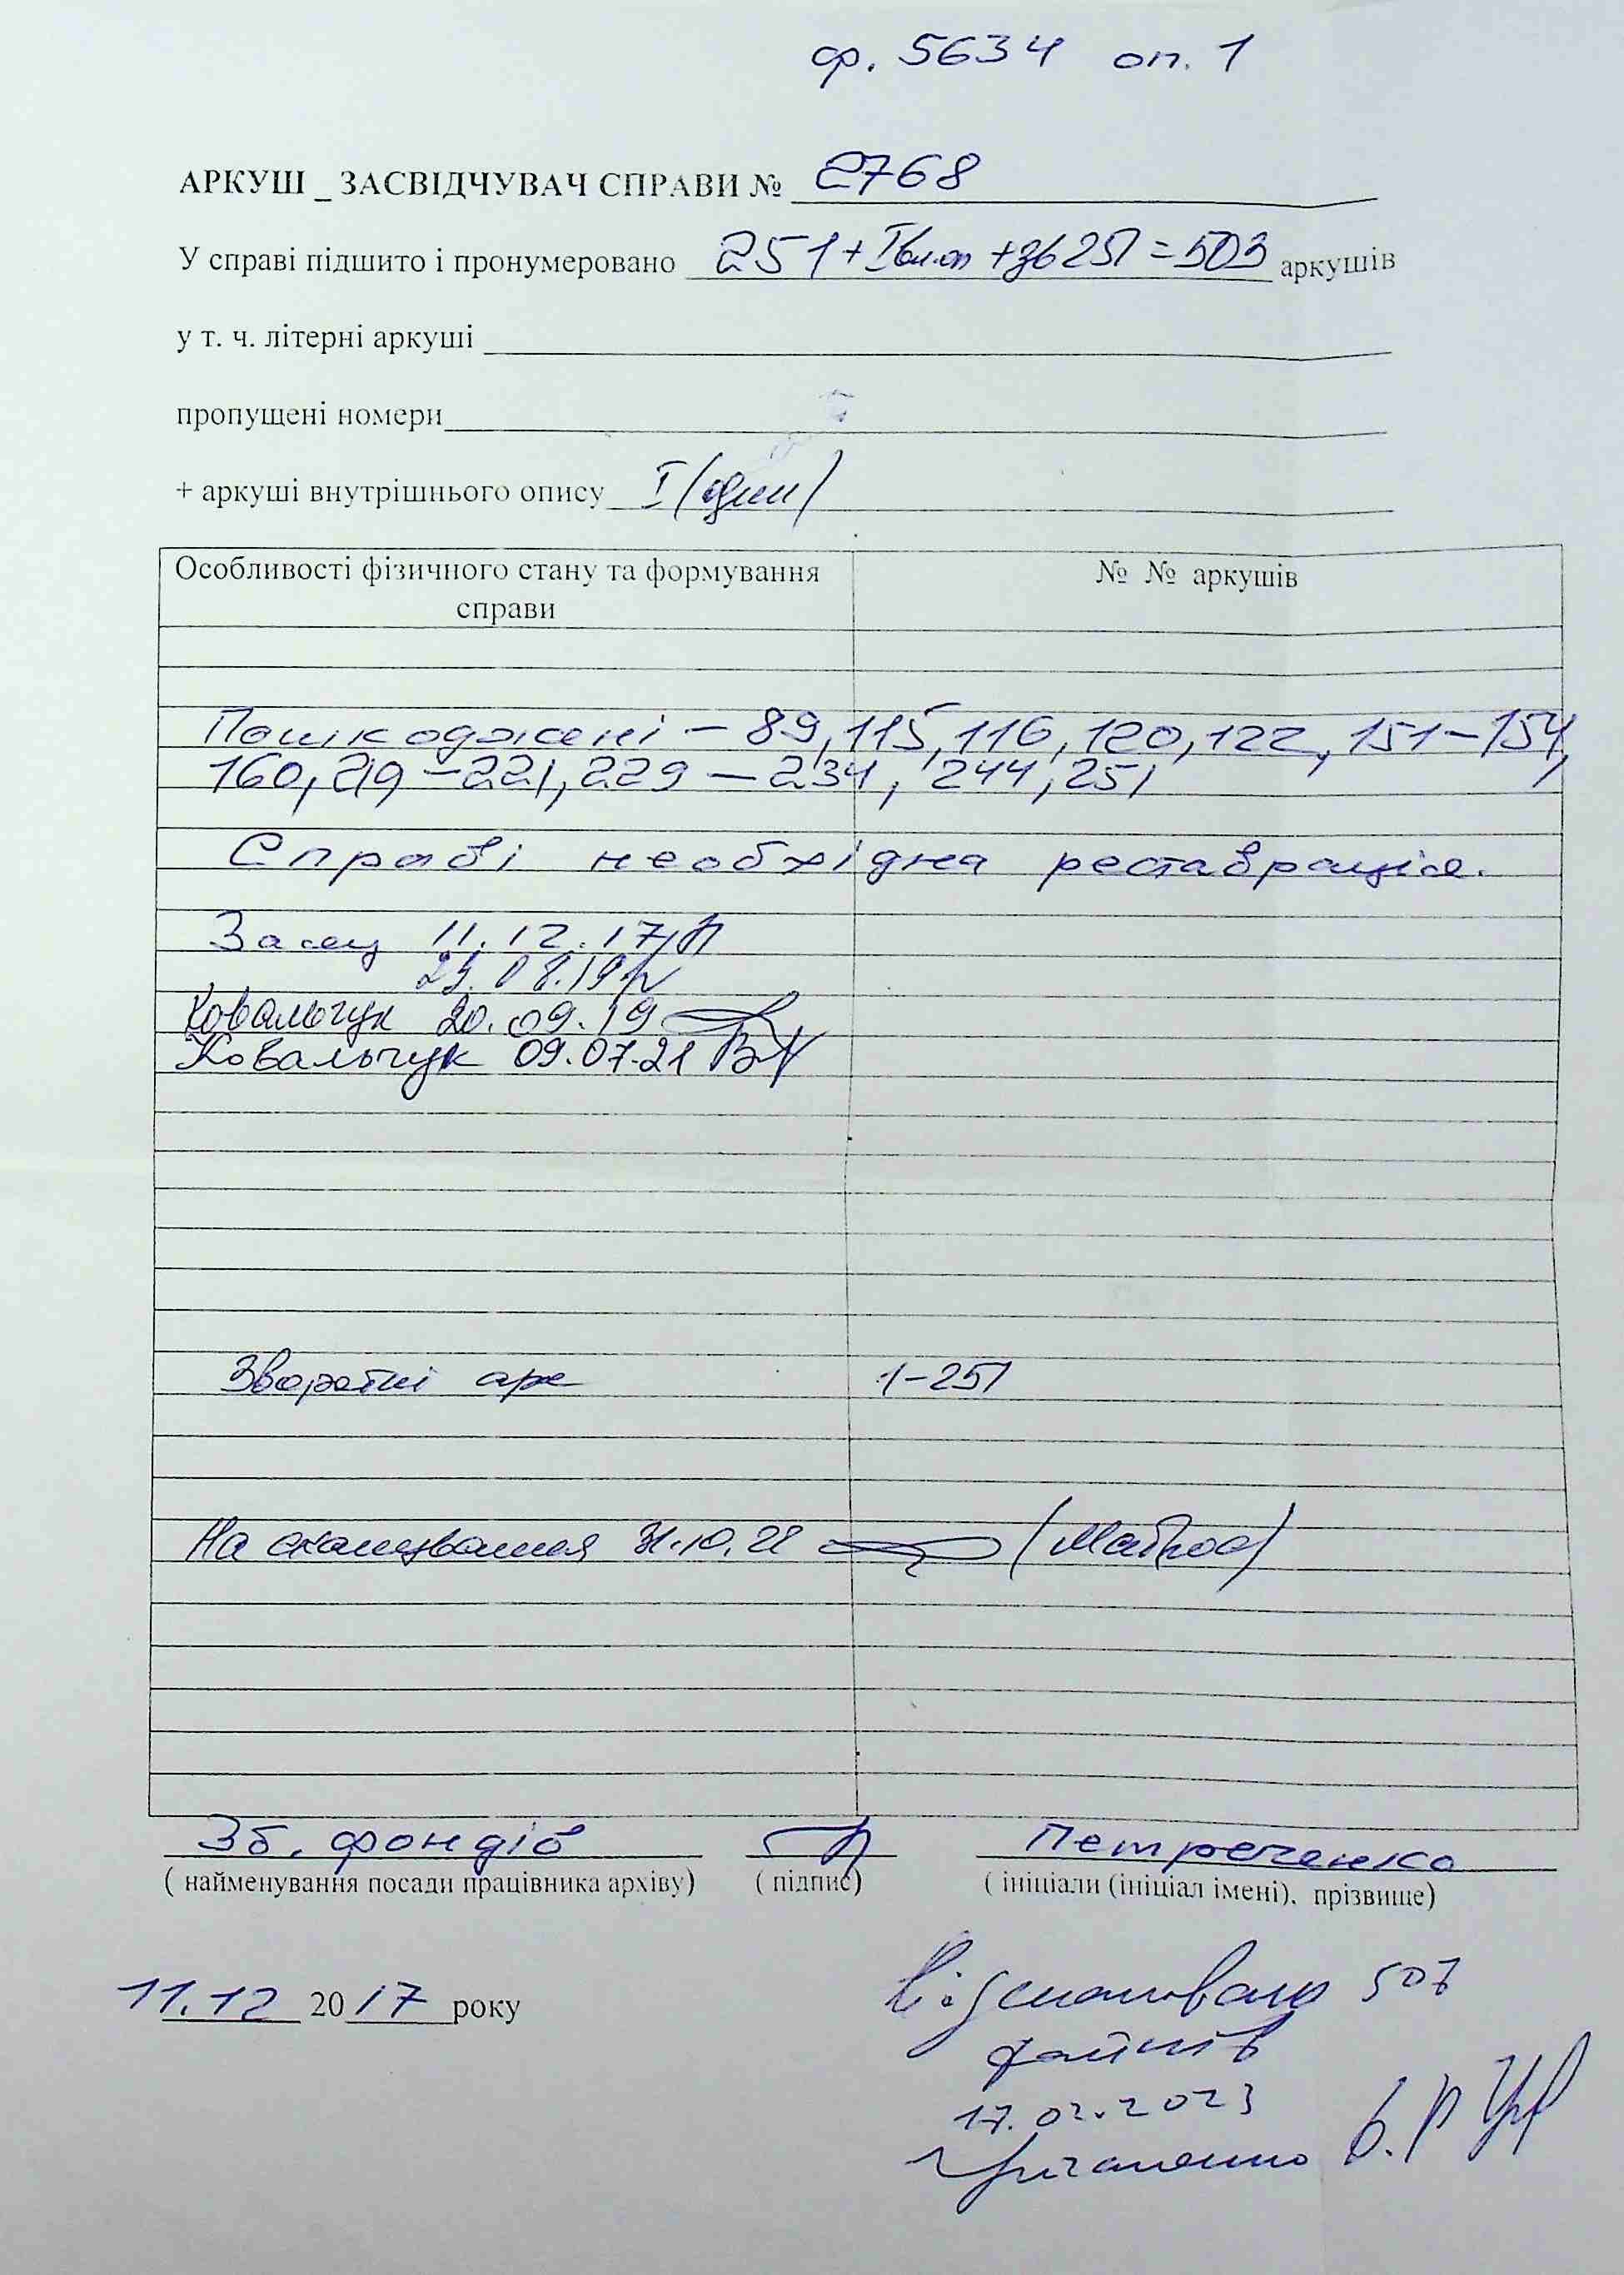 ф. 5634 оп. 1
АРКУШ _ ЗАСВІДЧУВАЧ СПРАВИ № 2768
У справі підшито і пронумеровано 251 + I вн.оп + зв 251 = 503 аркушів
у т. ч. літерні аркуші
пропущені номери
+ аркуші внутрішнього опису I (один)
Особливості фізичного стану та формування справи
№ № аркушів
Пошкоджені – 89, 115, 116, 120, 122, 151–154,
160, 219–221, 229–234, 244, 251
Справі необхідна реставрація.
11.12.17
08.19
Ковальчук 20.09.19
Ковальчук 09.07.21
Зворотні арк 1–251
На сканування 31.10.22
Зб. фондів Петреченко
( найменування посади працівника архіву) ( підпис) ( ініціали (ініціал імені), прізвище)
11.12 2017 року
Відскановано 507
файлів
17.02.2023